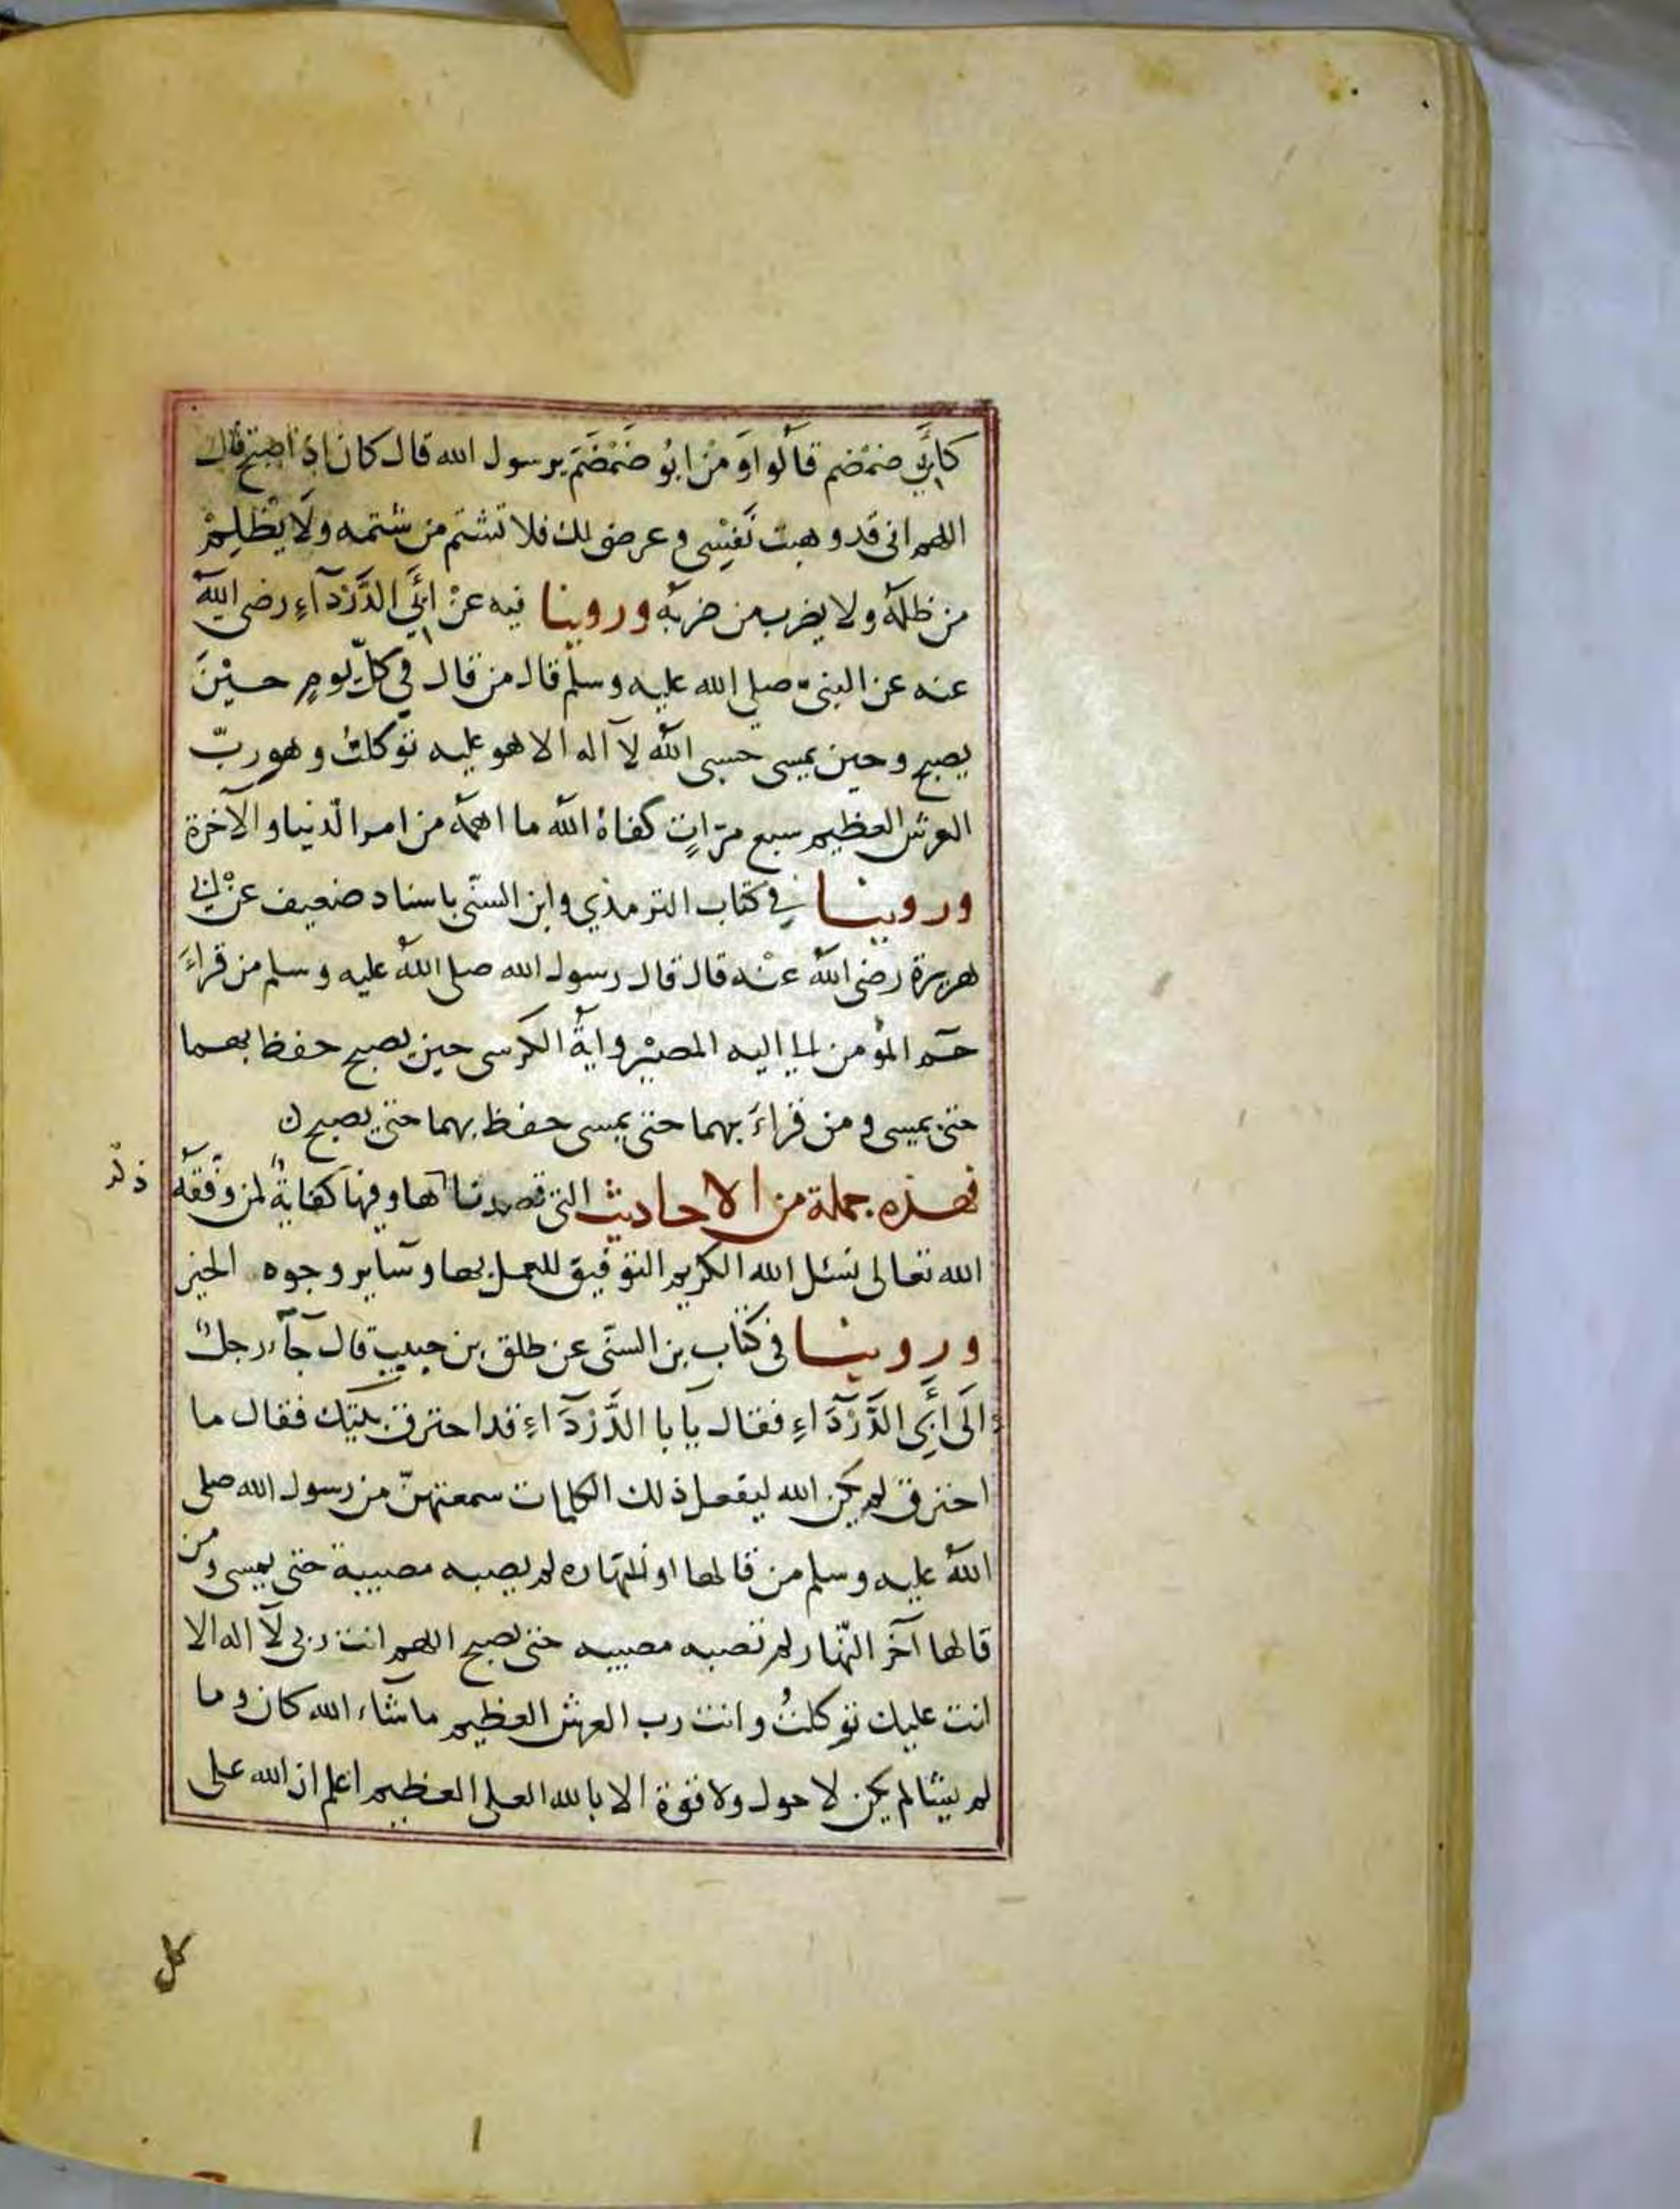 كَأَبِي ضَمْضَم قَالُوا وَمَنْ ابُو ضَمْضَمَ يرسول الله قال كان إذا اصبح قال
اللهم انى قد وهبت نَفْسِى وعرضى لك فلا تشتم من شتمه ولَا يَظْلِمْ
من ظلمهُ ولا يضرب من ضربهُ وروينا فيه عَنْ ابَِي الدَّرْدَآءِ رضى اللهُ
عنه عن النبى صلى الله عليه وسلم قال من قال في كلّ يومٍ حِيْنَ
يصبح وحين يمسى حسبى اللهُ لآ اله الا هو عليه توكلتُ وهو ربّ
العرش العظيم سبع مرّاتٍ كفاهُ اللهُ ما اهمّهُ من امر الدّنيا والآخرة
وروينا في كتاب الترمذي وابن السنّى باسناد ضعيف عَنْ ابى
هريرة رضى اللهُ عنْه قال قال رسول الله صلى اللهُ عليه وسلم من قراءَ
حٓم المؤمن الى اليه المصيْر وايةُ الكرسى حين يصبح حفظ بهما
حتى يمسى ومن قراءَ بهما حتى يمسى حفظ بهما حتى يصبح ن
فهذه جملة من الاحاديث التى قصدنا ها وفيها كفايةٌ لمن وفّقهُ
ذكر
الله تعالى نسئل الله الكريم التوفيق للعمل بها وسآير وجوه الخير
وروينا فى كتاب بن السنّى عن طلق بن حبيب قال جآء رجلٌ
الَى أَبِى الدَّرْدَآءِ فقال يآ با الدَّرْدَآءِ قد احترق بيتك فقال ما
احترق لم يكن الله ليفعل ذلك الكلمات سمعتهنّ من رسول الله صلى
اللهُ عليه وسلم من قالها اول نهاره لم يصبه مصيبة حتى يمسى ومن
قالها آخر النّهار لم تصبه مصيبه حتى يصبح اللهم انت ربى لآ اله الا
انت عليك توكلتُ وانت رب العرش العظيم ما شآء الله كان وما
لم يشا لم يكن لا حول ولا قوّة الا بالله العلى العظيم اعلم ان الله على
كل